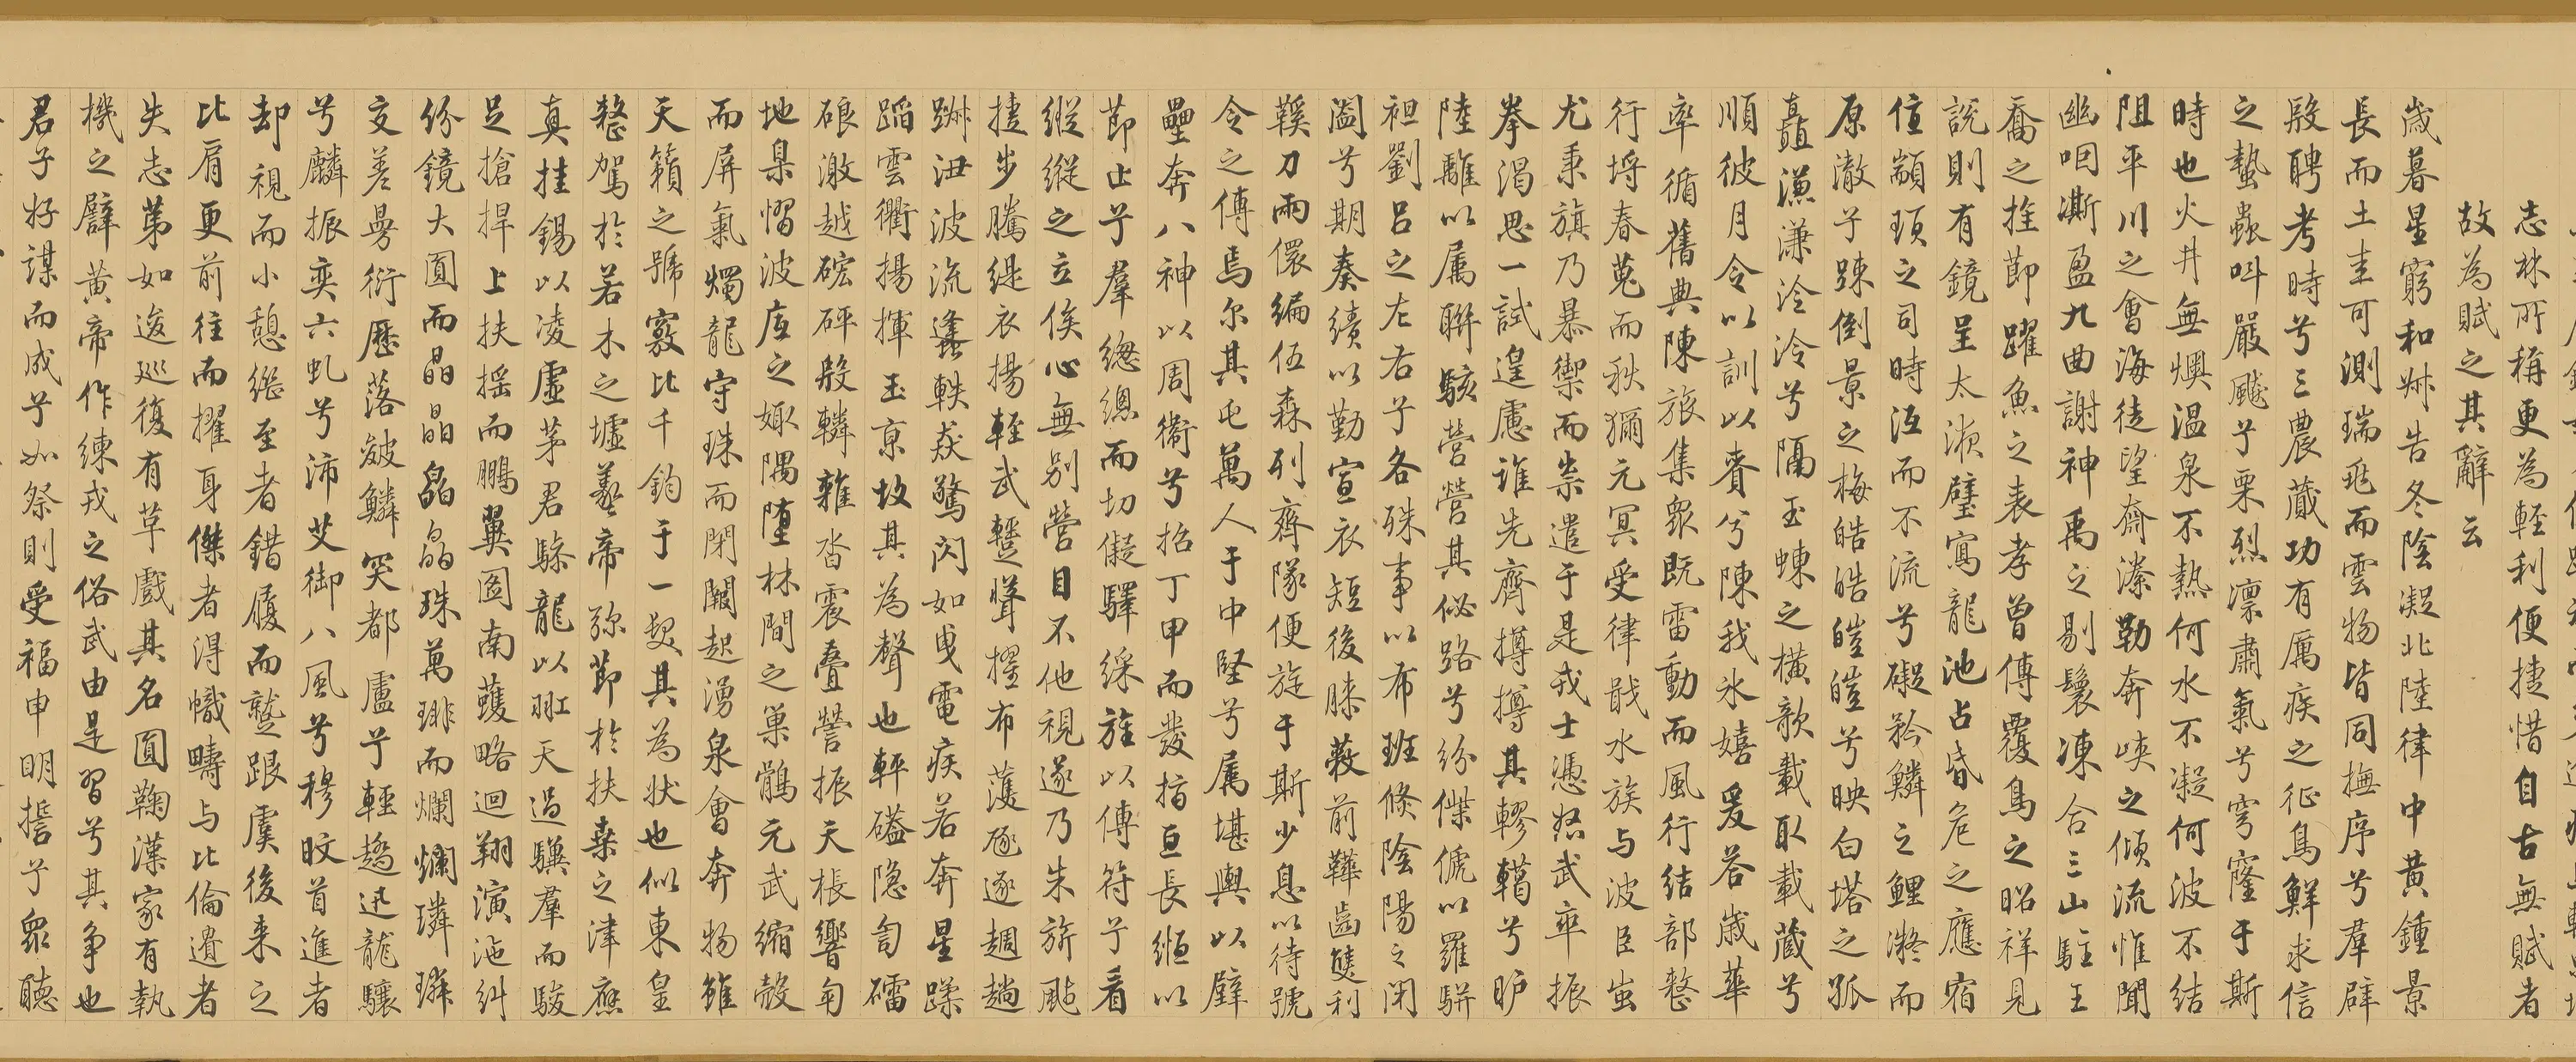 志林所稱更為輕利便捷惜自古無賦者
故為賦之其辭云
歲暮星窮和叔告冬陰凝北陸律中黃鍾景
長而土圭可測瑞兆而雲物皆同撫序兮羣辟
殷聘考時兮三農蕆功有厲疾之征鳥鮮求信
之蟄蟲叫嚴飈兮栗烈凛肅氣兮穹窿于斯
時也火井無燠溫泉不熱何水不凝何波不結
阻平川之會海徒望齊漅勒奔峽之傾流惟聞
幽咽澌盈九曲謝神禹之剔鬟凍合三山駐王
喬之推節躍魚之表孝曾傳覆鳥之昭祥見
說則有鏡呈太液璧寫龍池占昏危之應宿
值顓頊之司時沍而不流兮礙矜鱗之鯉凝而
原澈兮踈倒景之梅皓皓皚皚兮映白塔之孤
矗濂濂泠泠兮隔玉蝀之橫歌載取載藏兮
順彼月令以訓以賚兮陳我氷嬉爰荅歲華
率循舊典陳旅集眾既雷動而風行結部整
行埒春蒐而秋獮元冥受律戢水族与波臣蚩
尤秉旗乃暴禦而祟遣于是戎士憑怒武卒振
拳渴思一試遑慮誰先齊撙撙其轇轕兮眆
陸離以屬聯駭營營其佖路兮紛傑傂以羅駢
袒劉呂之左右兮各殊事以布班倏陰陽之闭
闔兮期奏績以勤宣衣短後膝蔽前鞾齒雙利
鞵刀兩儇編伍森列齊隊便旋于斯少息以待號
令之傳焉尔其屯萬人于中堅兮属堪輿以壁
壘奔八神以周衛兮招丁甲而發指亘長絙以
節止兮羣總總而切儗驛綵旌以傳符兮看
縱縱之立俟心無別營目不他視遂乃朱旂颭
捷步騰緹衣揚輕武躄聳擢布䕶逐逐趨趟
躃泄波流逢軼猋驚閃如曳電疾若奔星蹂
蹈雲衢揚揮玉京故其為聲也軯礚隐訇礌
硠激越硡砰殷轔雜沓震疊謍振天棖響訇
地臬慴波底之娵隅墮林間之巢鶻元武縮殼
而屏氣燭龍守珠而閉闢起湧泉會奔物雖
天籟之號竅比千鈞于一髮其為狀也似東皇
整駕於若木之墟羲帝弥節於扶桑之津應
真挂錫以凌虛茅君騄龍以羾天過驥羣而駿
足搶捍上扶摇而鵬翼圖南蠖略迴翔演迤糾
纷鏡大圓而晶晶皛皛珠萬琲而爛爛璘璘
交差曼衍歷落皴鱗突都盧兮輕趫迅龍驤
兮麟振奕六虬兮沛艾御八風兮穆旼首進者
却視而小憩继至者錯履而躄跟虞後来之
比肩更前往而擢身傑者得幟疇与比倫遺者
失志第如逡巡復有草戲其名圓鞠漢家有執
機之躃黃帝作練戎之俗武由是習兮其争也
君子好謀而成兮如祭則受福申明誓兮眾聽